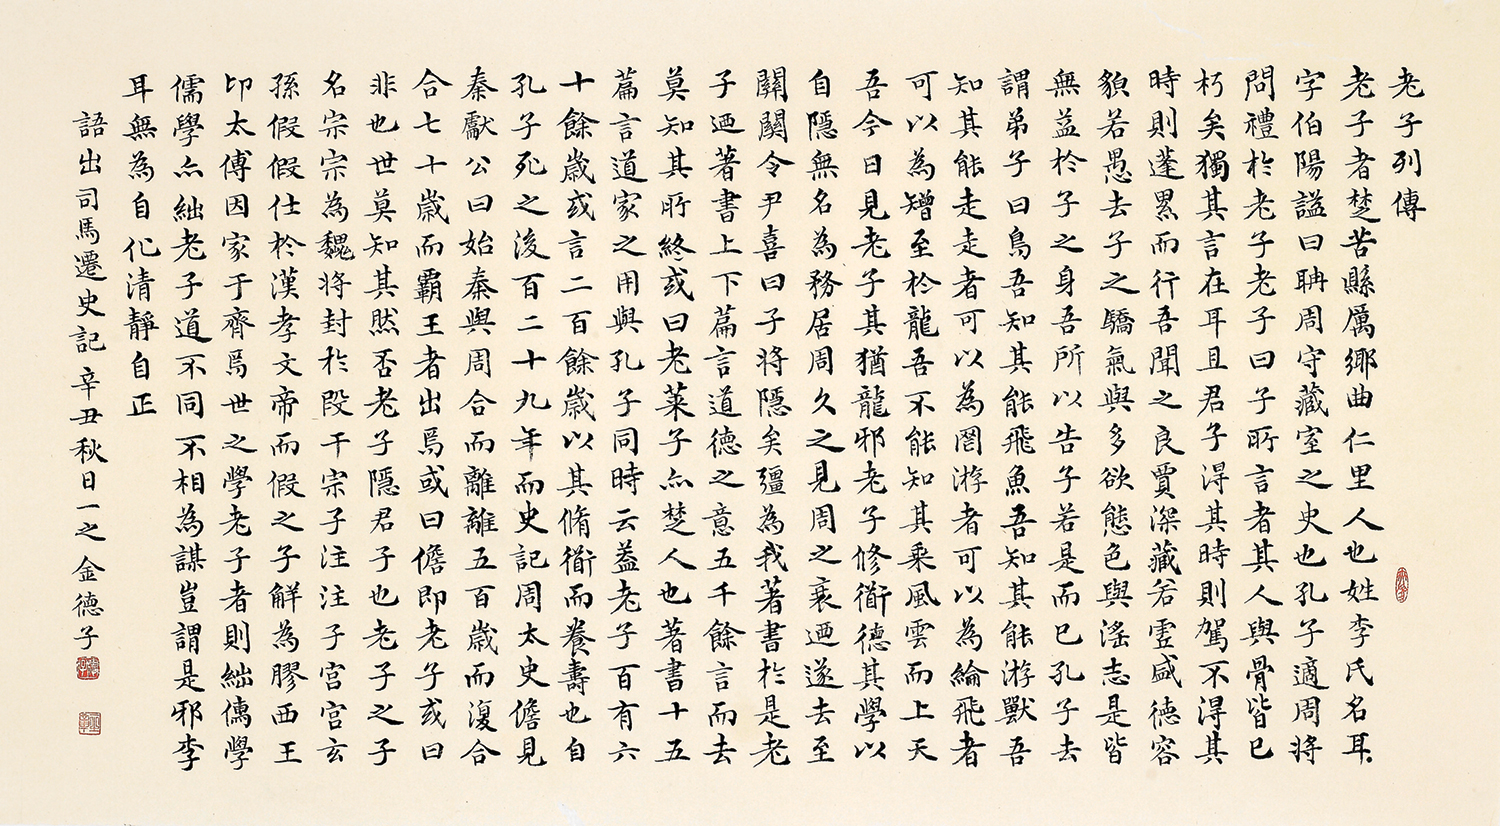 老子列傳
老子者楚苦縣厲鄉曲仁里人也姓李氏名耳
字伯陽謚曰聃周守藏室之史也孔子適周將
問禮於老子老子曰子所言者其人與骨皆已
朽矣獨其言在耳且君子得其時則駕不得其
時則蓬累而行吾聞之良賈深藏若虛盛德容
貌若愚去子之驕氣與多欲態色與淫志是皆
無益於子之身吾所以告子若是而已孔子去
謂弟子曰鳥吾知其能飛魚吾知其能游獸吾
知其能走走者可以為罔游者可以為綸飛者
可以為矰至於龍吾不能知其乘風雲而上天
吾今日見老子其猶龍邪老子修衜德其學以
自隱無名為務居周久之見周之衰迺遂去至
關關令尹喜曰子將隱矣彊為我著書於是老
子迺著書上下篇言道德之意五千餘言而去
莫知其所終或曰老萊子亦楚人也著書十五
篇言道家之用與孔子同時云蓋老子百有六
十餘歲或言二百餘歲以其脩衜而養壽也自
孔子死之後百二十九年而史記周太史儋見
秦獻公曰始秦與周合而離離五百歲而復合
合七十歲而霸王者出焉或曰儋即老子或曰
非也世莫知其然否老子隱君子也老子之子
名宗宗為魏將封於段干宗子注注子宮宮玄
孫假假仕於漢孝文帝而假之子解為膠西王
卬太傅因家于齊焉世之學老子者則絀儒學
儒學亦絀老子道不同不相為謀豈謂是邪李
耳無為自化清靜自正
語出司馬遷史記辛丑秋日一之金德子